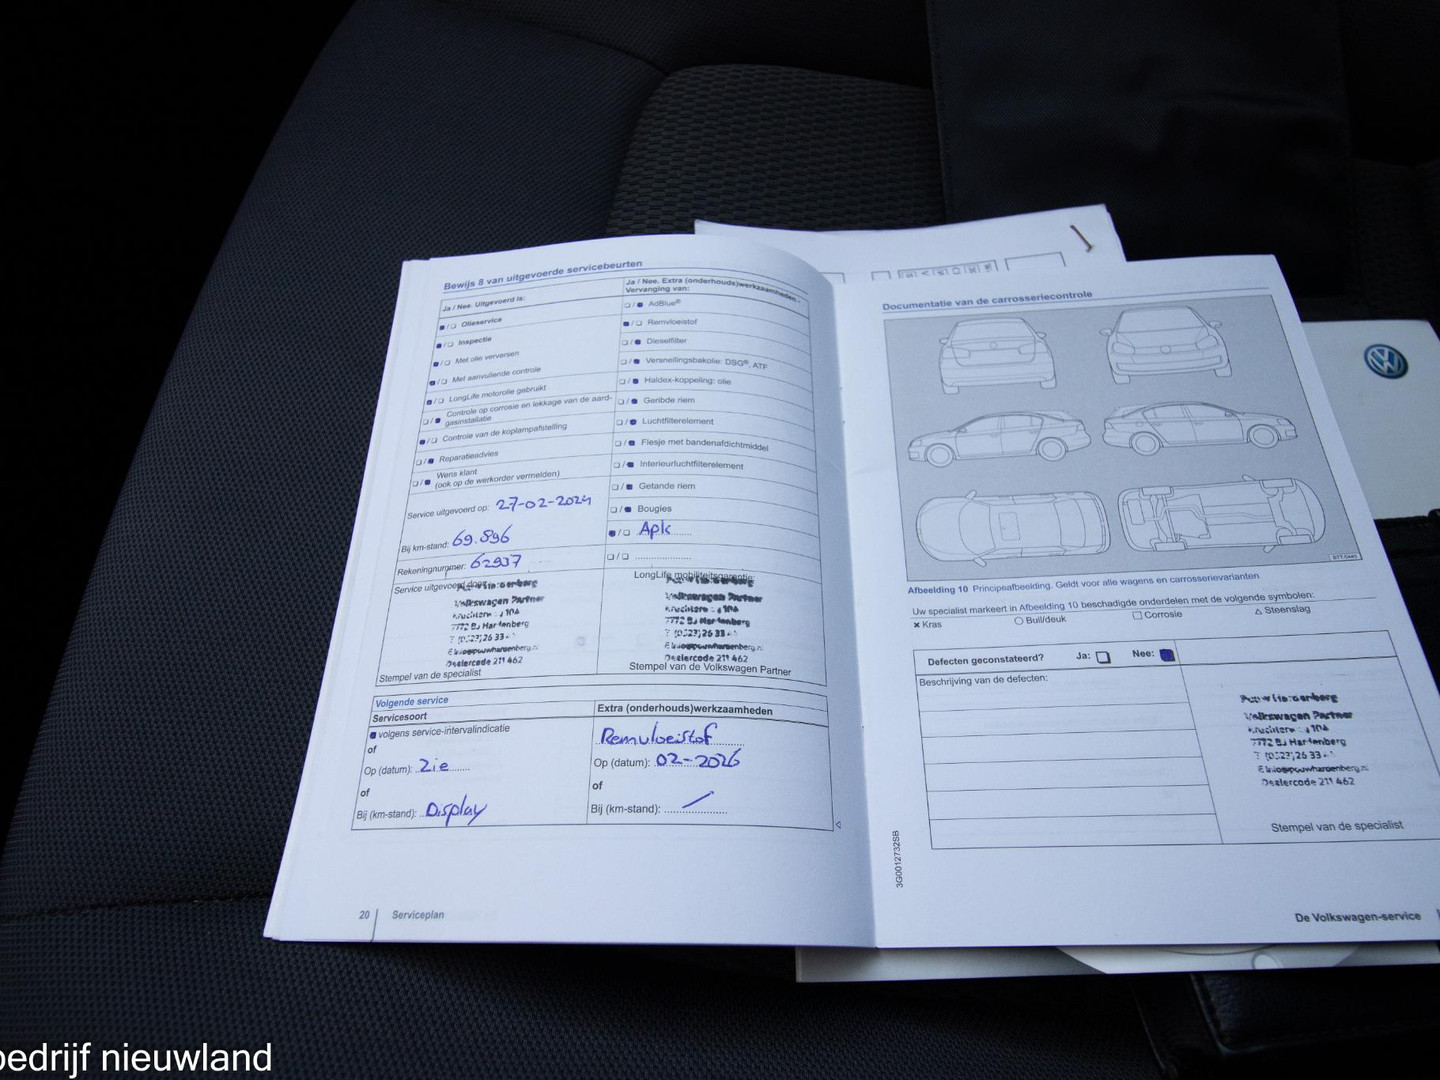 Bewijs 8 van uitgevoerde servicebeurten
Ja / Nee. Uitgevoerd is:
Olieservice
Inspectie
Met olie verversen
Met aanvullende controle
LongLife motorolie gebruikt
Controle op corrosie en lekkage van de aard-
gasinstallatie
Controle van de koplampafstelling
Reparatieadvies
Wens klant
(ook op de werkorder vermelden)
Service uitgevoerd op: 27-02-2024
Bij km-stand: 69.896
Rekeningnummer: 62937
Service uitgevoerd door:
Volkswagen Partner
7772 BJ Hardenberg
Dealercode 211 462
Stempel van de specialist
Ja / Nee. Extra (onderhouds)werkzaamheden -
Vervanging van:
AdBlue®
Remvloeistof
Dieselfilter
Versnellingsbakolie: DSG®, ATF
Haldex-koppeling: olie
Geribde riem
Luchtfilterelement
Flesje met bandenafdichtmiddel
Interieurluchtfilterelement
Getande riem
Bougies
Apk
LongLife mobiliteitsgarantie:
Volkswagen Partner
7772 BJ Hardenberg
Dealercode 211 462
Stempel van de Volkswagen Partner
Volgende service
Servicesoort
volgens service-intervalindicatie
of
Op (datum): Zie
of
Bij (km-stand): Display
Extra (onderhouds)werkzaamheden
Remvloeistof
Op (datum): 02-2026
of
Bij (km-stand): /
20 Serviceplan
Documentatie van de carrosseriecontrole
Afbeelding 10 Principeafbeelding. Geldt voor alle wagens en carrosserievarianten
Uw specialist markeert in Afbeelding 10 beschadigde onderdelen met de volgende symbolen:
× Kras ○ Buil/deuk □ Corrosie △ Steenslag
Defecten geconstateerd? Ja: Nee:
Beschrijving van de defecten:
Volkswagen Partner
7772 BJ Hardenberg
Dealercode 211 462
Stempel van de specialist
3G0012732SB
De Volkswagen-service
bedrijf nieuwland